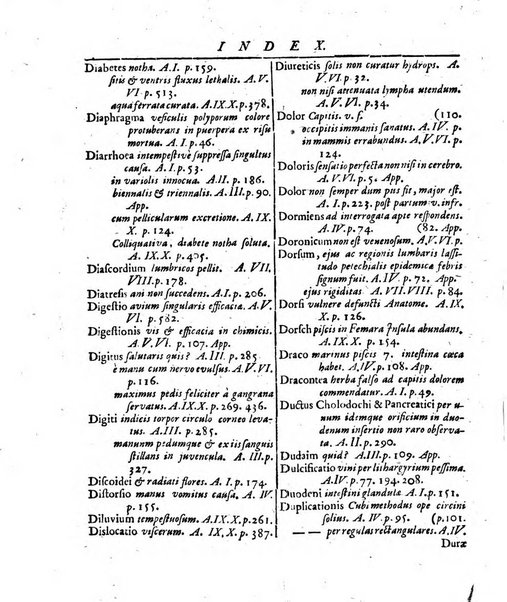 INDEX.
Diabetes notha. A. I. p. 159.
sitis & ventris fluxus lethalis. A. V.
VI p. 513.
aqua ferrata curata. A. IX. X. p. 378.
Diaphragma vesiculis polyporum colore
protuberans in puerpera ex risu
mortua. A. I. p. 46.
Diarrhoea intempestivè suppressa singultus
causa. A. I. p. 53
in variolis innocua. A. II p. 186.
biennalis & triennalis. A. III p. 90.
App.
cum pellicularum excretione. A. IX.
X. p. 124.
Colliquativa, diabete notha soluta.
A. IX. X. p. 405.
Diascordium lumbricos pellit. A. VII.
VIII. p. 178.
Diatresis ani non succedens. A. I. p. 206.
Digestio avium singularis efficacia. A. V.
VI. p. 582.
Digestionis vis & efficacia in chimicis.
A. V. VI. p. 107. App.
Digitus salutaris quis? A. III. p. 285
è manu cum nervo evulsus. A. V. VI.
p. 116.
maximus pedis feliciter à gangræna
servatus. A. IX. X. p. 269. 436.
Digiti indicis torpor circulo corneo leva-
tus. A. III. p. 285.
manuum pedumque & ex iis sanguis
stillans in juvencula. A. III. p.
327.
Discoidei & radiati flores. A. I. p. 174.
Distorsio manus vomitus causa. A. IV
p. 155.
Diluvium tempestuosum. A. IX. X. p. 261.
Dislocatio viscerum. A. IX. X. p. 387.
Diureticis solis non curatur hydrops. A.
V. VI. p. 32.
non nisi attenuata lympha utendum.
A. V. VI. p. 34.
Dolor Capitis. v. f. (110.
occipitis immanis sanatus. A. IV. p.
in mammis errabundus. A. V. VI. p.
124.
Doloris sensatio perfecta non nisi in cerebro.
A. V. VI. p. 5. App.
Dolor non semper dum pus fit, major est.
A. I. p. 223. post partum v. infr.
Dormiens ad interrogata apte respondens.
A. IV. p. 74. (82. App.
Doronicum non est venenosum. A. V. VI. p.
Dorsum, ejus ac regionis lumbaris lassi-
tudo petechialis epidemicæ febris
signum fuit. A. IV. p. 72. App.
ejus rigiditas A. VII. VIII. p. 84.
Dorsi vulnere defuncti Anatome. A. IX.
X. p. 126.
Dorsch piscis in Femara Insula abundans.
A. IX. X. p. 154.
Draco marinus piscis 7. intestina cæca
habet. A. IV. p. 198.
Dracontea herba falso ad capitis dolorem
commendatur. A. I. p. 49.
Ductus Cholodochi & Pancreatici per u-
num idemque orificium in duo-
denum insertio non raro observa-
ta. A. II. p. 290.
Dudaim quid? A. III. p. 109. App.
Dulcificatio vini per lithargyrium pessima.
A. IV. p. 77. 194. 208.
Duodeni intestini glandulæ A. I. p. 151.
Duplicationis Cubi methodus ope circini
solius. A. IV p. 95. (p. 101.
— — per regulas rectangulares. A. IV.
Duræ